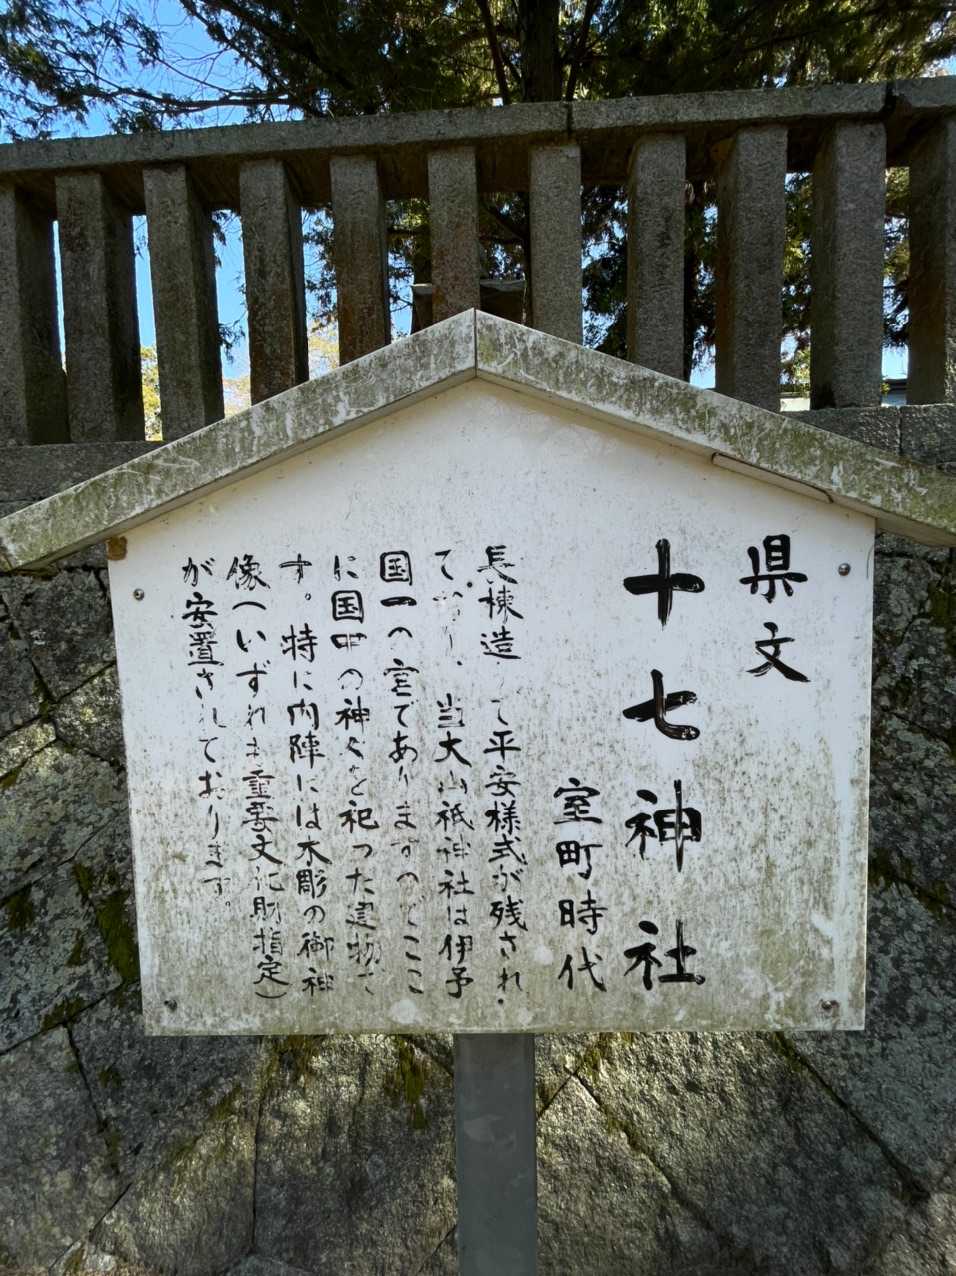 県文
十七神社
室町時代
長棟造 て平安様式が残され
て り、当大山祇神社は伊予
国一の宮でありますのでここ
に国中の神々を祀った建物で
す。特に内陣には木彫の御神
像(いずれも重要文化財指定)
が安置されております。